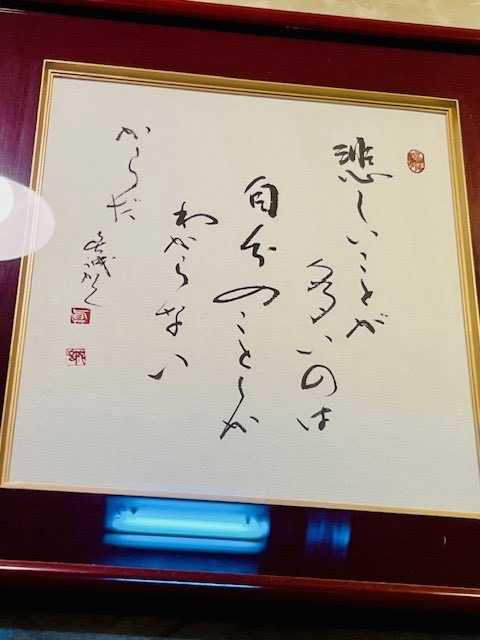 悲しいことが
多いのは
自分のことしか
わからない
からだ